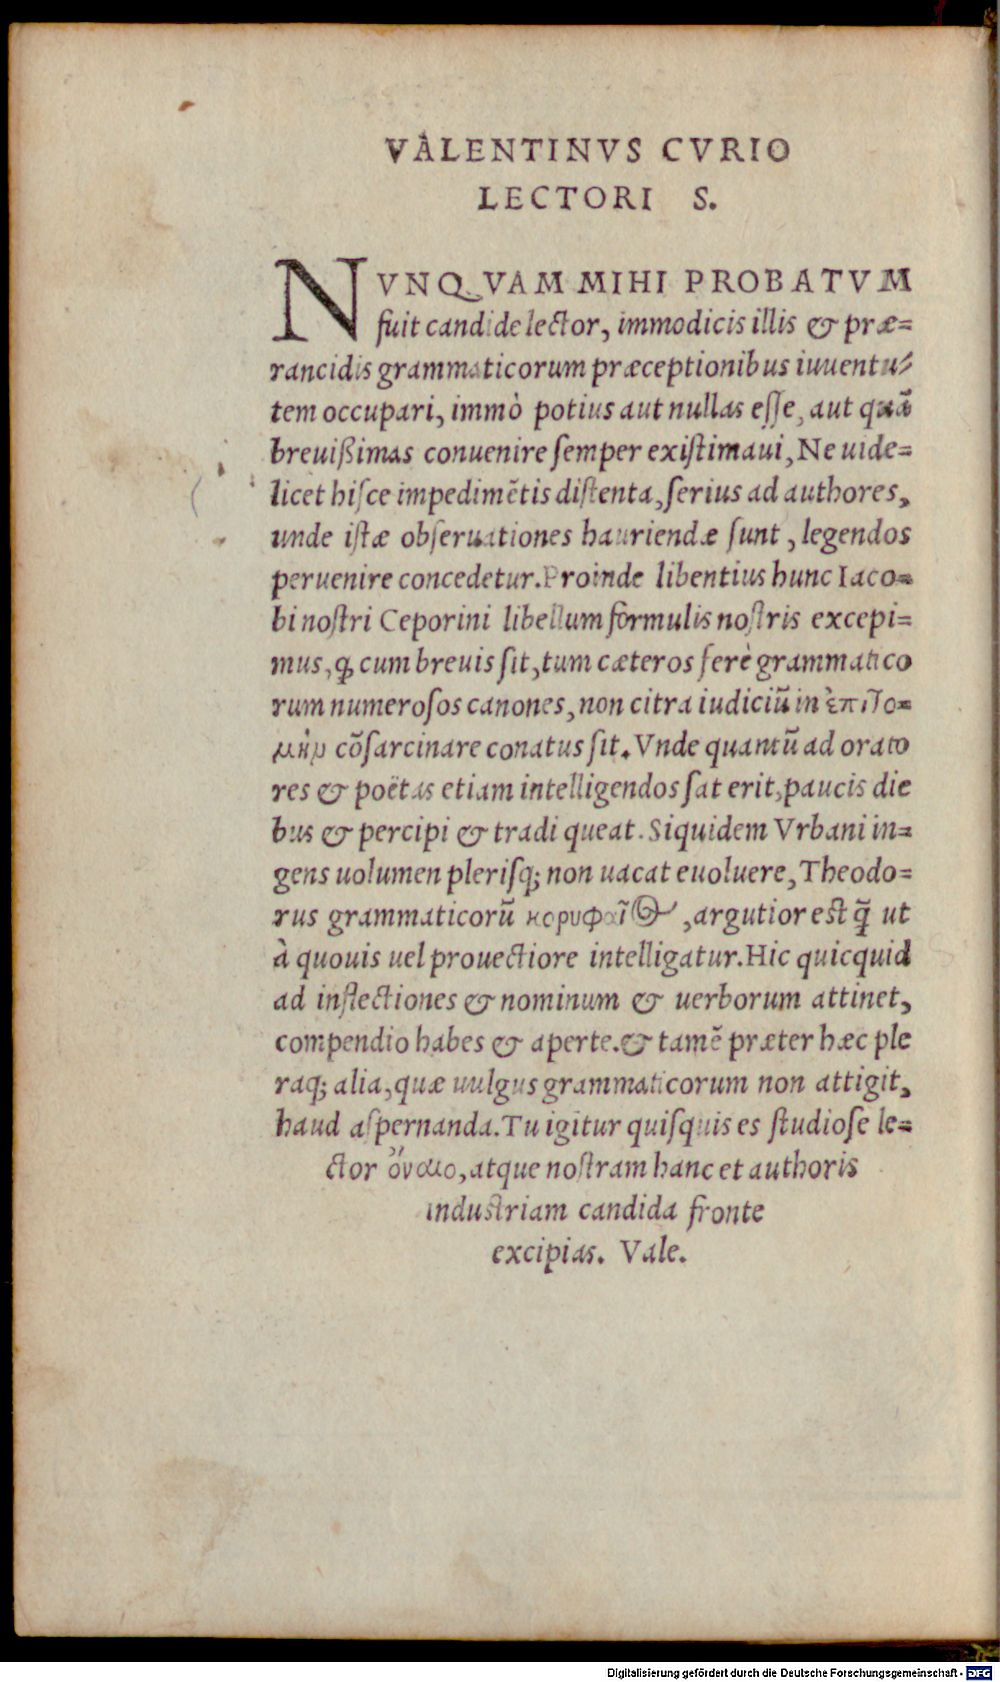 VALENTINVS CVRIO
LECTORI S.
NVNQVAM MIHI PROBATVM
fuit candide lector, immodicis illis & præ=
rancidis grammaticorum præceptionibus iuuentu=
tem occupari, immò potius aut nullas esse, aut quã
breuißimas conuenire semper existimaui, Ne uide=
licet hisce impedimẽtis distenta, serius ad authores,
unde istæ obseruationes hauriendæ sunt, legendos
peruenire concedetur. Proinde libentius hunc Iaco=
bi nostri Ceporini libellum formulis nostris excepi=
mus, ꝙ cum breuis sit, tum cæteros ferè grammatico
rum numerosos canones, non citra iudiciũ in ἐπιτο=
μὴν cõsarcinare conatus sit. Vnde quantũ ad orato
res & poëtas etiam intelligendos sat erit, paucis die
bus & percipi & tradi queat. Siquidem Vrbani in=
gens uolumen plerisq; non uacat euoluere, Theodo=
rus grammaticorũ κορυφαῖος, argutior est q̃ ut
à quouis uel prouectiore intelligatur. Hic quicquid
ad inflectiones & nominum & uerborum attinet,
compendio habes & aperte. & tamẽ præter hæc ple
raq; alia, quæ uulgus grammaticorum non attigit,
haud aspernanda. Tu igitur quisquis es studiose le=
ctor ὄναιο, atque nostram hanc et authoris
industriam candida fronte
excipias. Vale.
Digitalisierung gefördert durch die Deutsche Forschungsgemeinschaft - DFG